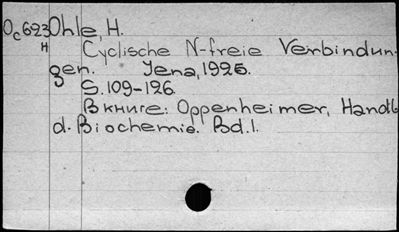 Oc623 Ohle, H.
H Cyclische N-freie Verbindun-
gen. Jena, 1925.
S. 109-126
В книге: Oppenheimer, Handb
d. Biochemie. Bd. 1.